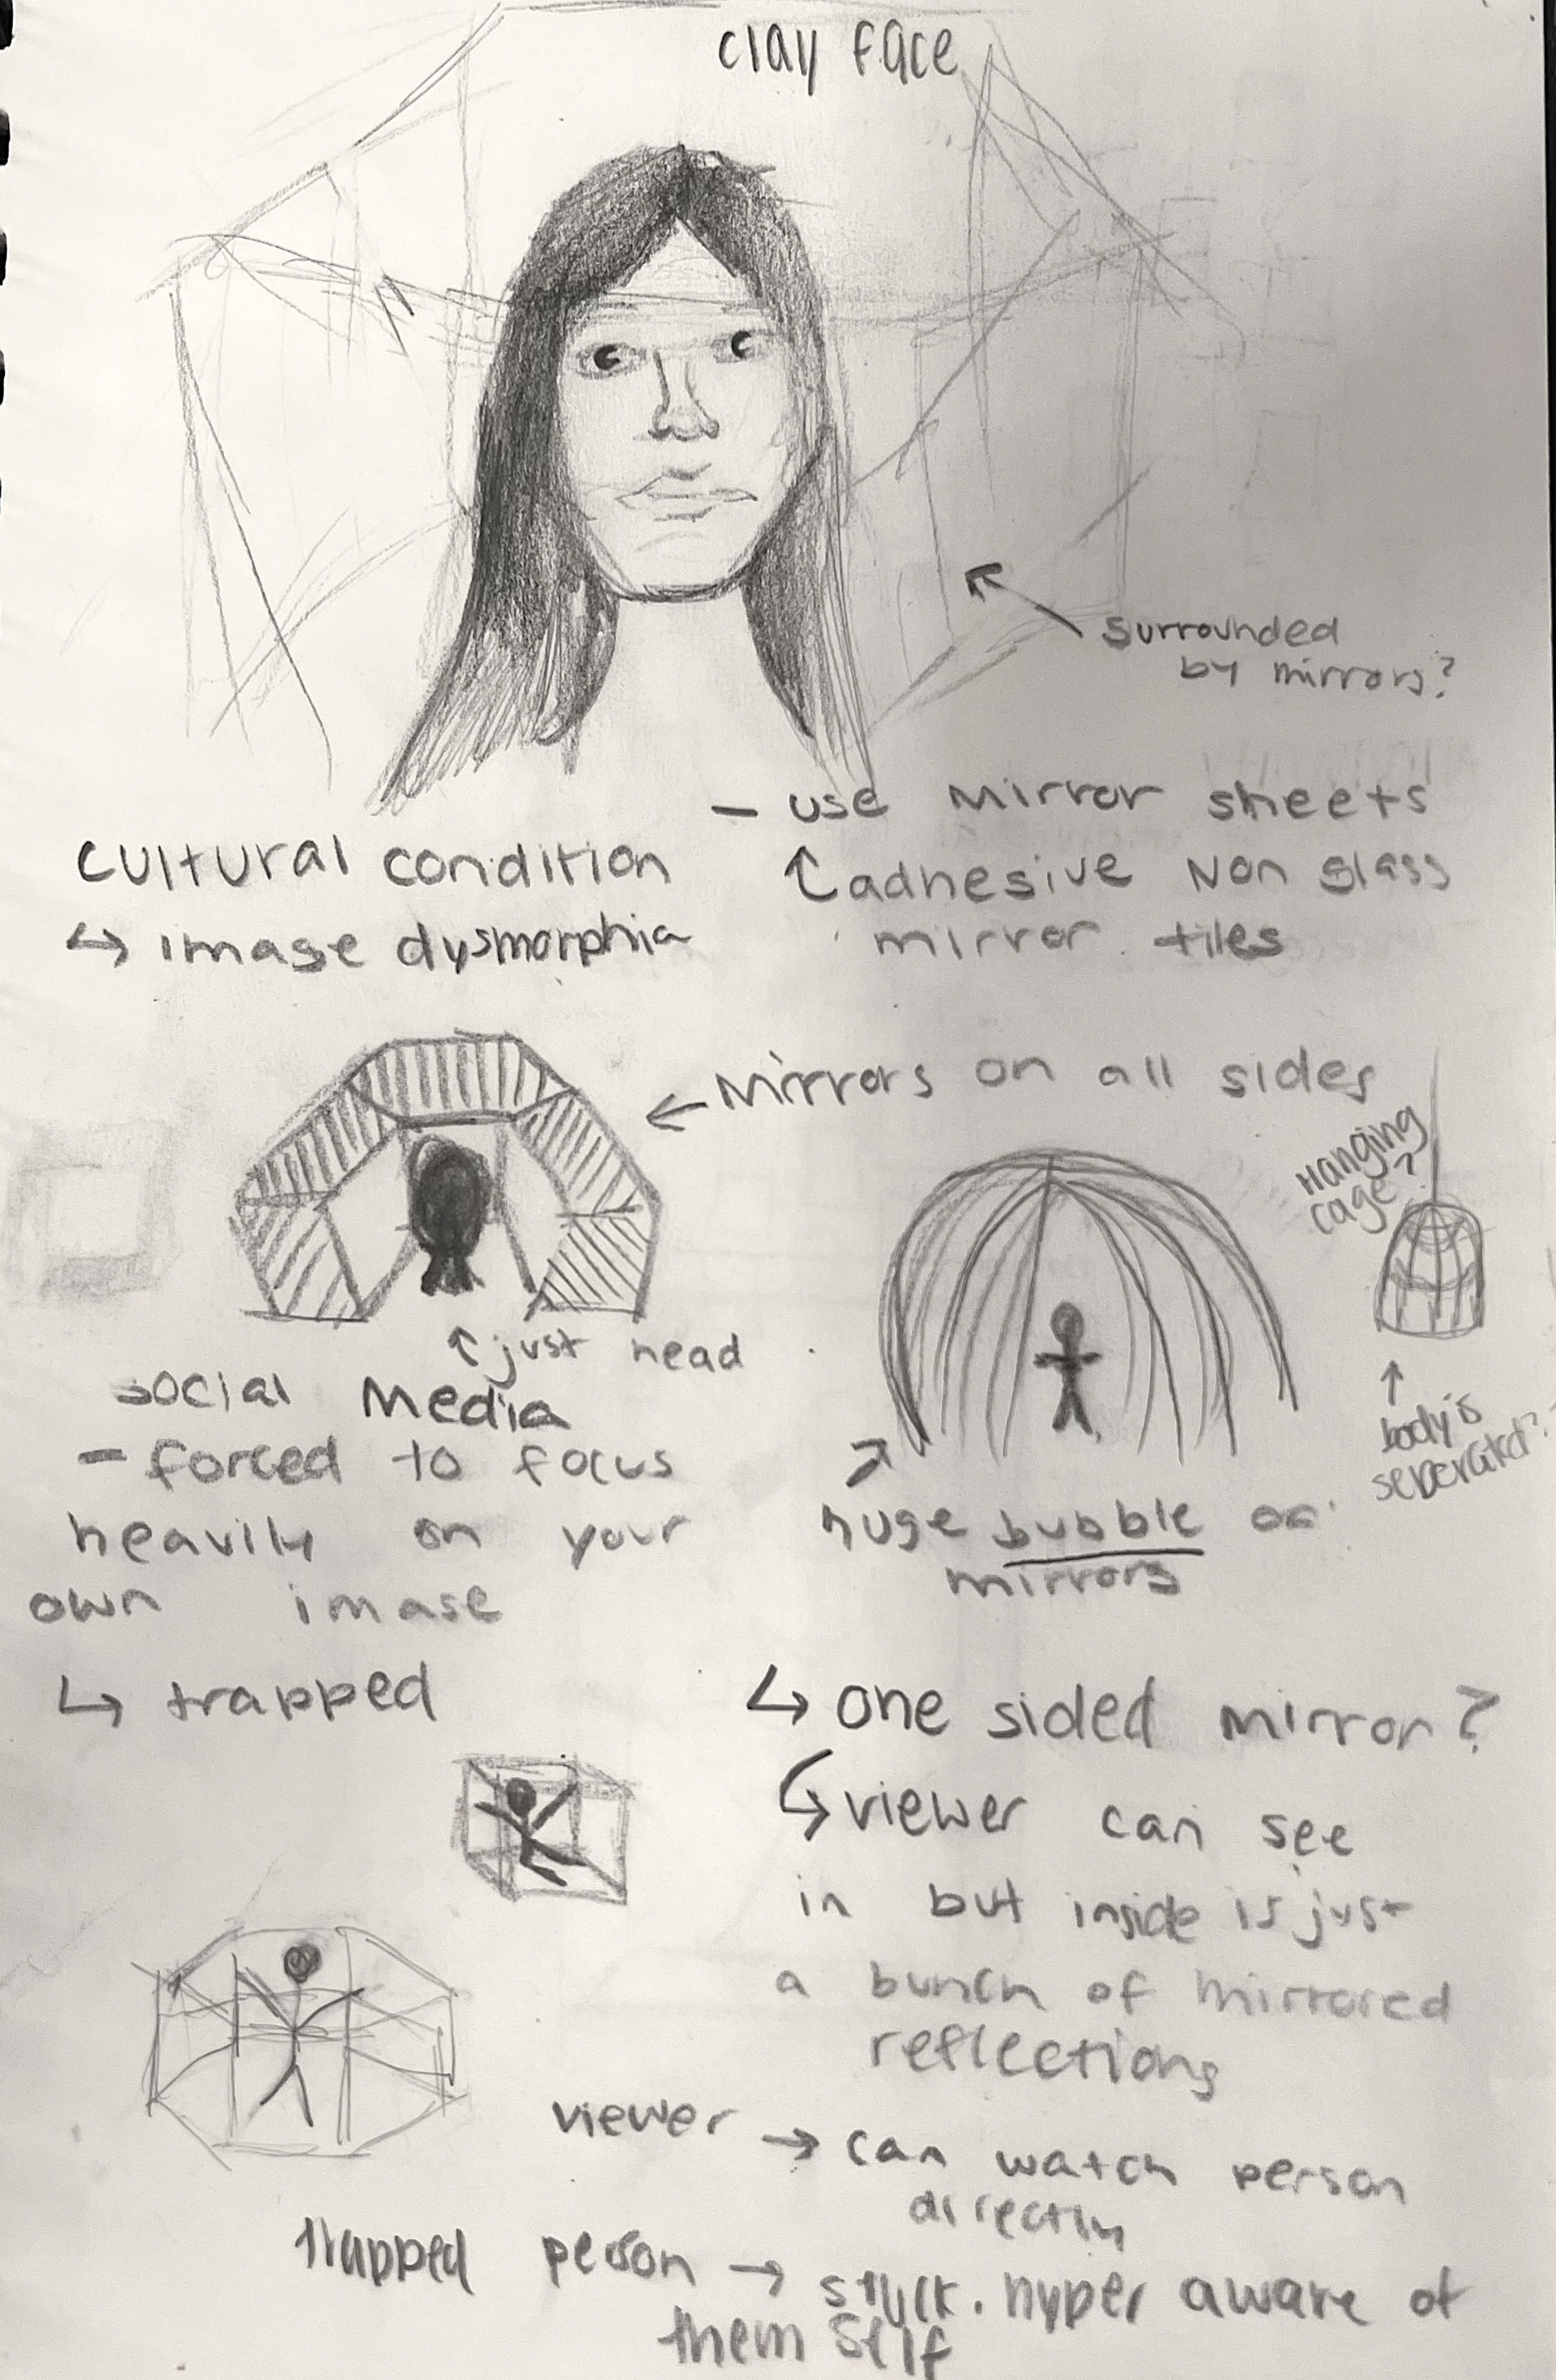 clay face
surrounded
by mirrors?
- use mirror sheets
adhesive Non glass
mirror tiles
cultural condition
↳ image dysmorphia
← Mirrors on all sides
Hanging
cage?
↑ just head
social Media
- forced to focus
heavily on your
own image
↳ trapped
↑
body is
seperated?
huge bubble of
mirrors
↳ one sided mirror?
↳ viewer can see
in but inside is just
a bunch of mirrored
reflections
viewer → can watch person
directly
trapped person → stuck. hyper aware of
them self